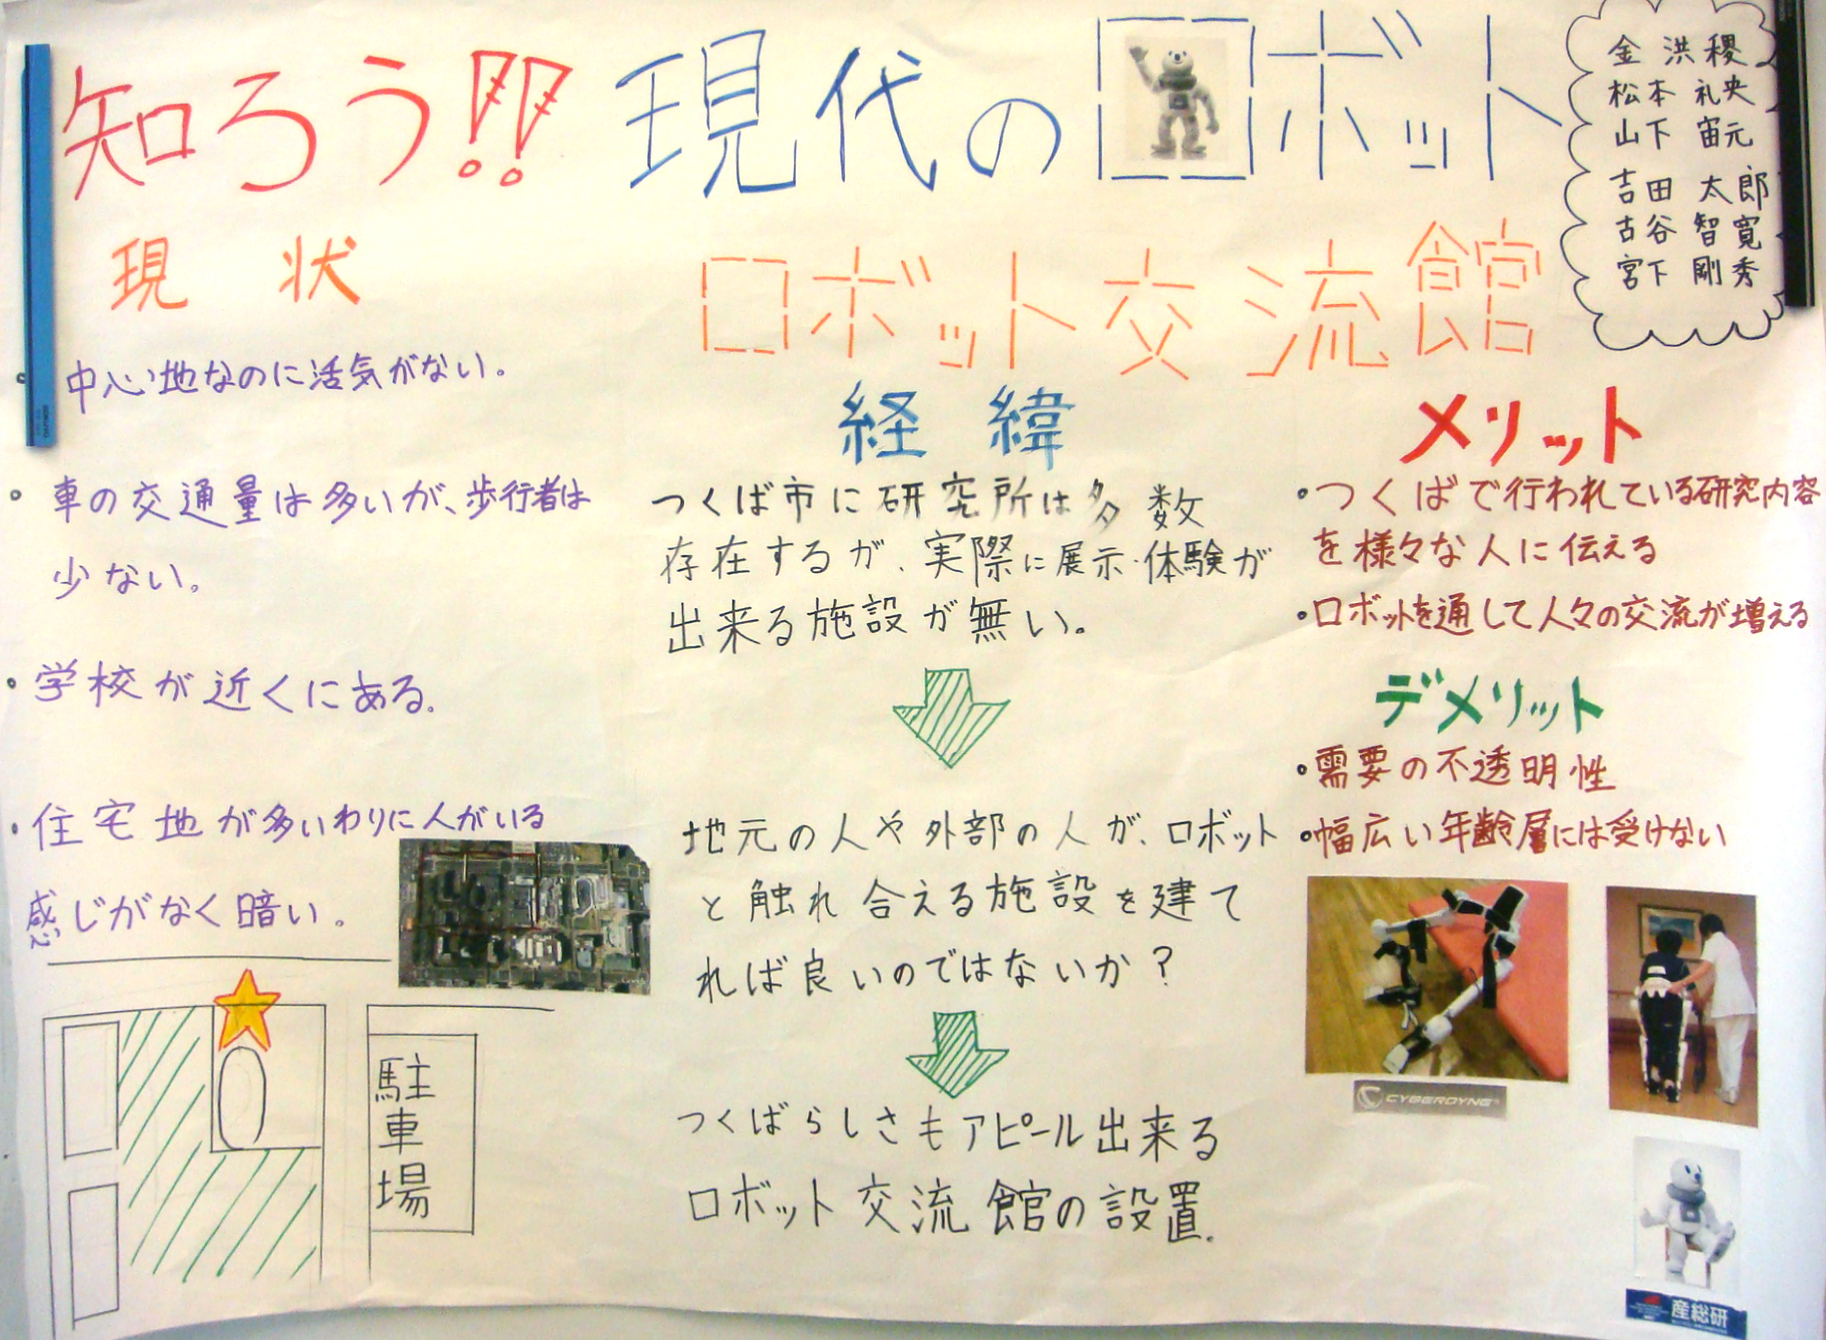 知ろう!! 現代のロボット
金 洪稷
松本 礼央
山下 宙元
吉田 太郎
古谷 智寛
宮下 剛秀
現状
・中心地なのに活気がない。
・車の交通量は多いが、歩行者は
少ない。
・学校が近くにある。
・住宅地が多いわりに人がいる
感じがなく暗い。
駐車場
ロボット交流館
経緯
つくば市に研究所は多数
存在するが、実際に展示・体験が
出来る施設が無い。
地元の人や外部の人が、ロボット
と触れ合える施設を建て
れば良いのではないか？
つくばらしさもアピール出来る
ロボット交流館の設置.
メリット
・つくばで行われている研究内容
を様々な人に伝える
・ロボットを通して人々の交流が増える
デメリット
・需要の不透明性
・幅広い年齢層には受けない
CYBERDYNE
産総研